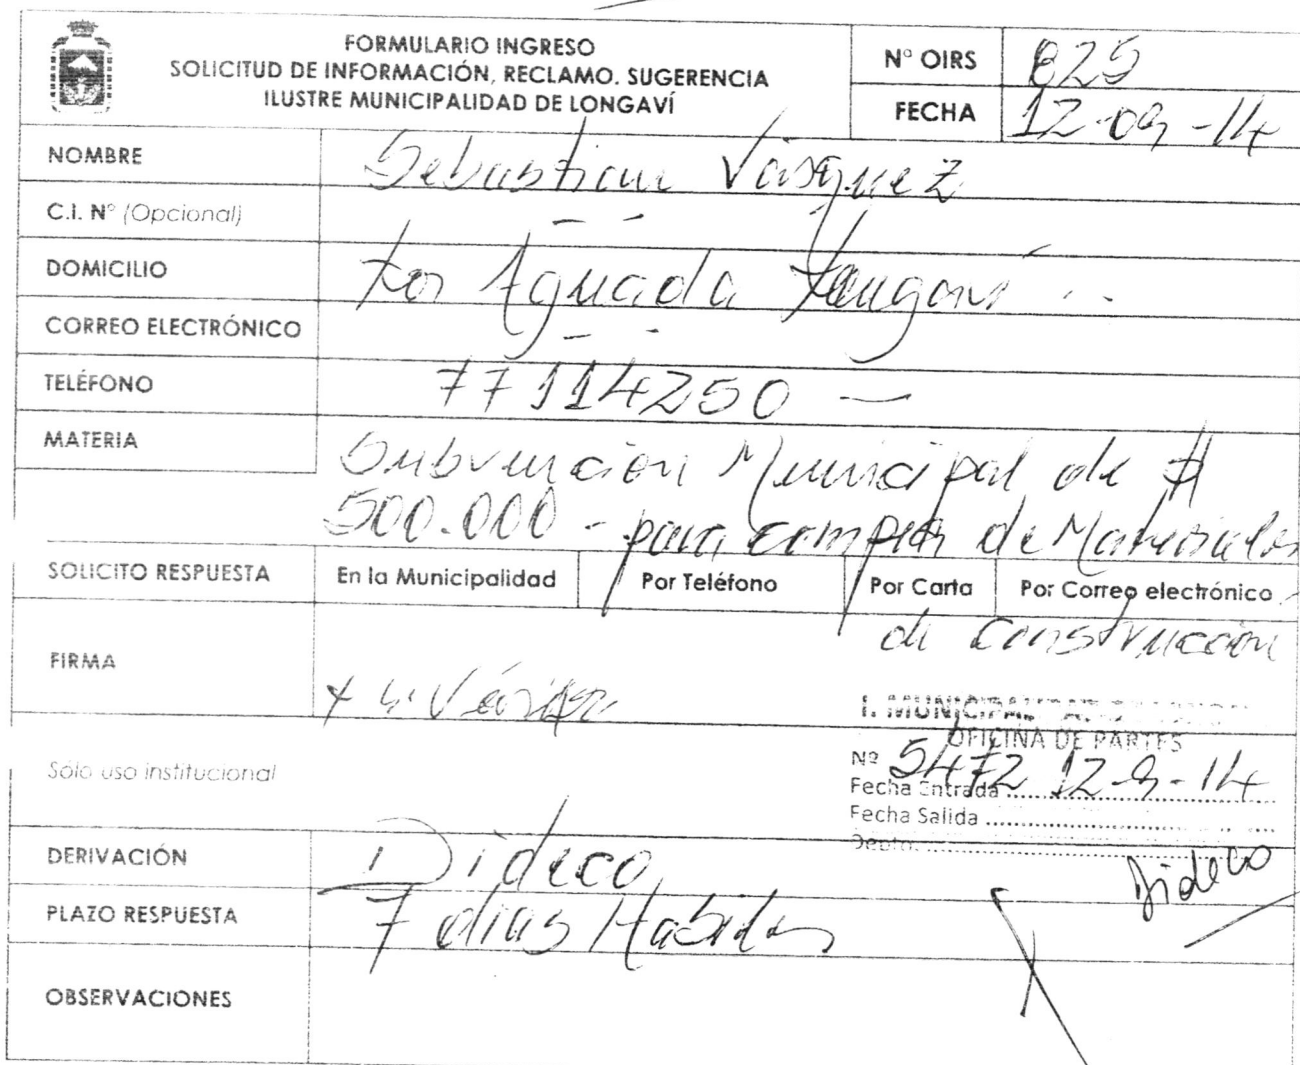 FORMULARIO INGRESO
SOLICITUD DE INFORMACIÓN, RECLAMO. SUGERENCIA
ILUSTRE MUNICIPALIDAD DE LONGAVÍ
N° OIRS 825
FECHA 12-09-14
NOMBRE Sebastian Vásquez
C.I. N° (Opcional) - -
DOMICILIO Los Aguada Longaví
CORREO ELECTRÓNICO - -
TELÉFONO 77114250 -
MATERIA Subvención Municipal de $
500.000 - para compra de Materiales
SOLICITO RESPUESTA En la Municipalidad Por Teléfono Por Carta Por Correo electrónico
de Construcción
FIRMA
I. MUNICIPALIDAD
OFICINA DE PARTES
Nº 5472 12-9-14
Fecha Entrada
Fecha Salida
Depto.
Sólo uso institucional
DERIVACIÓN Dideco
Dideco
PLAZO RESPUESTA 7 dias Habiles
OBSERVACIONES